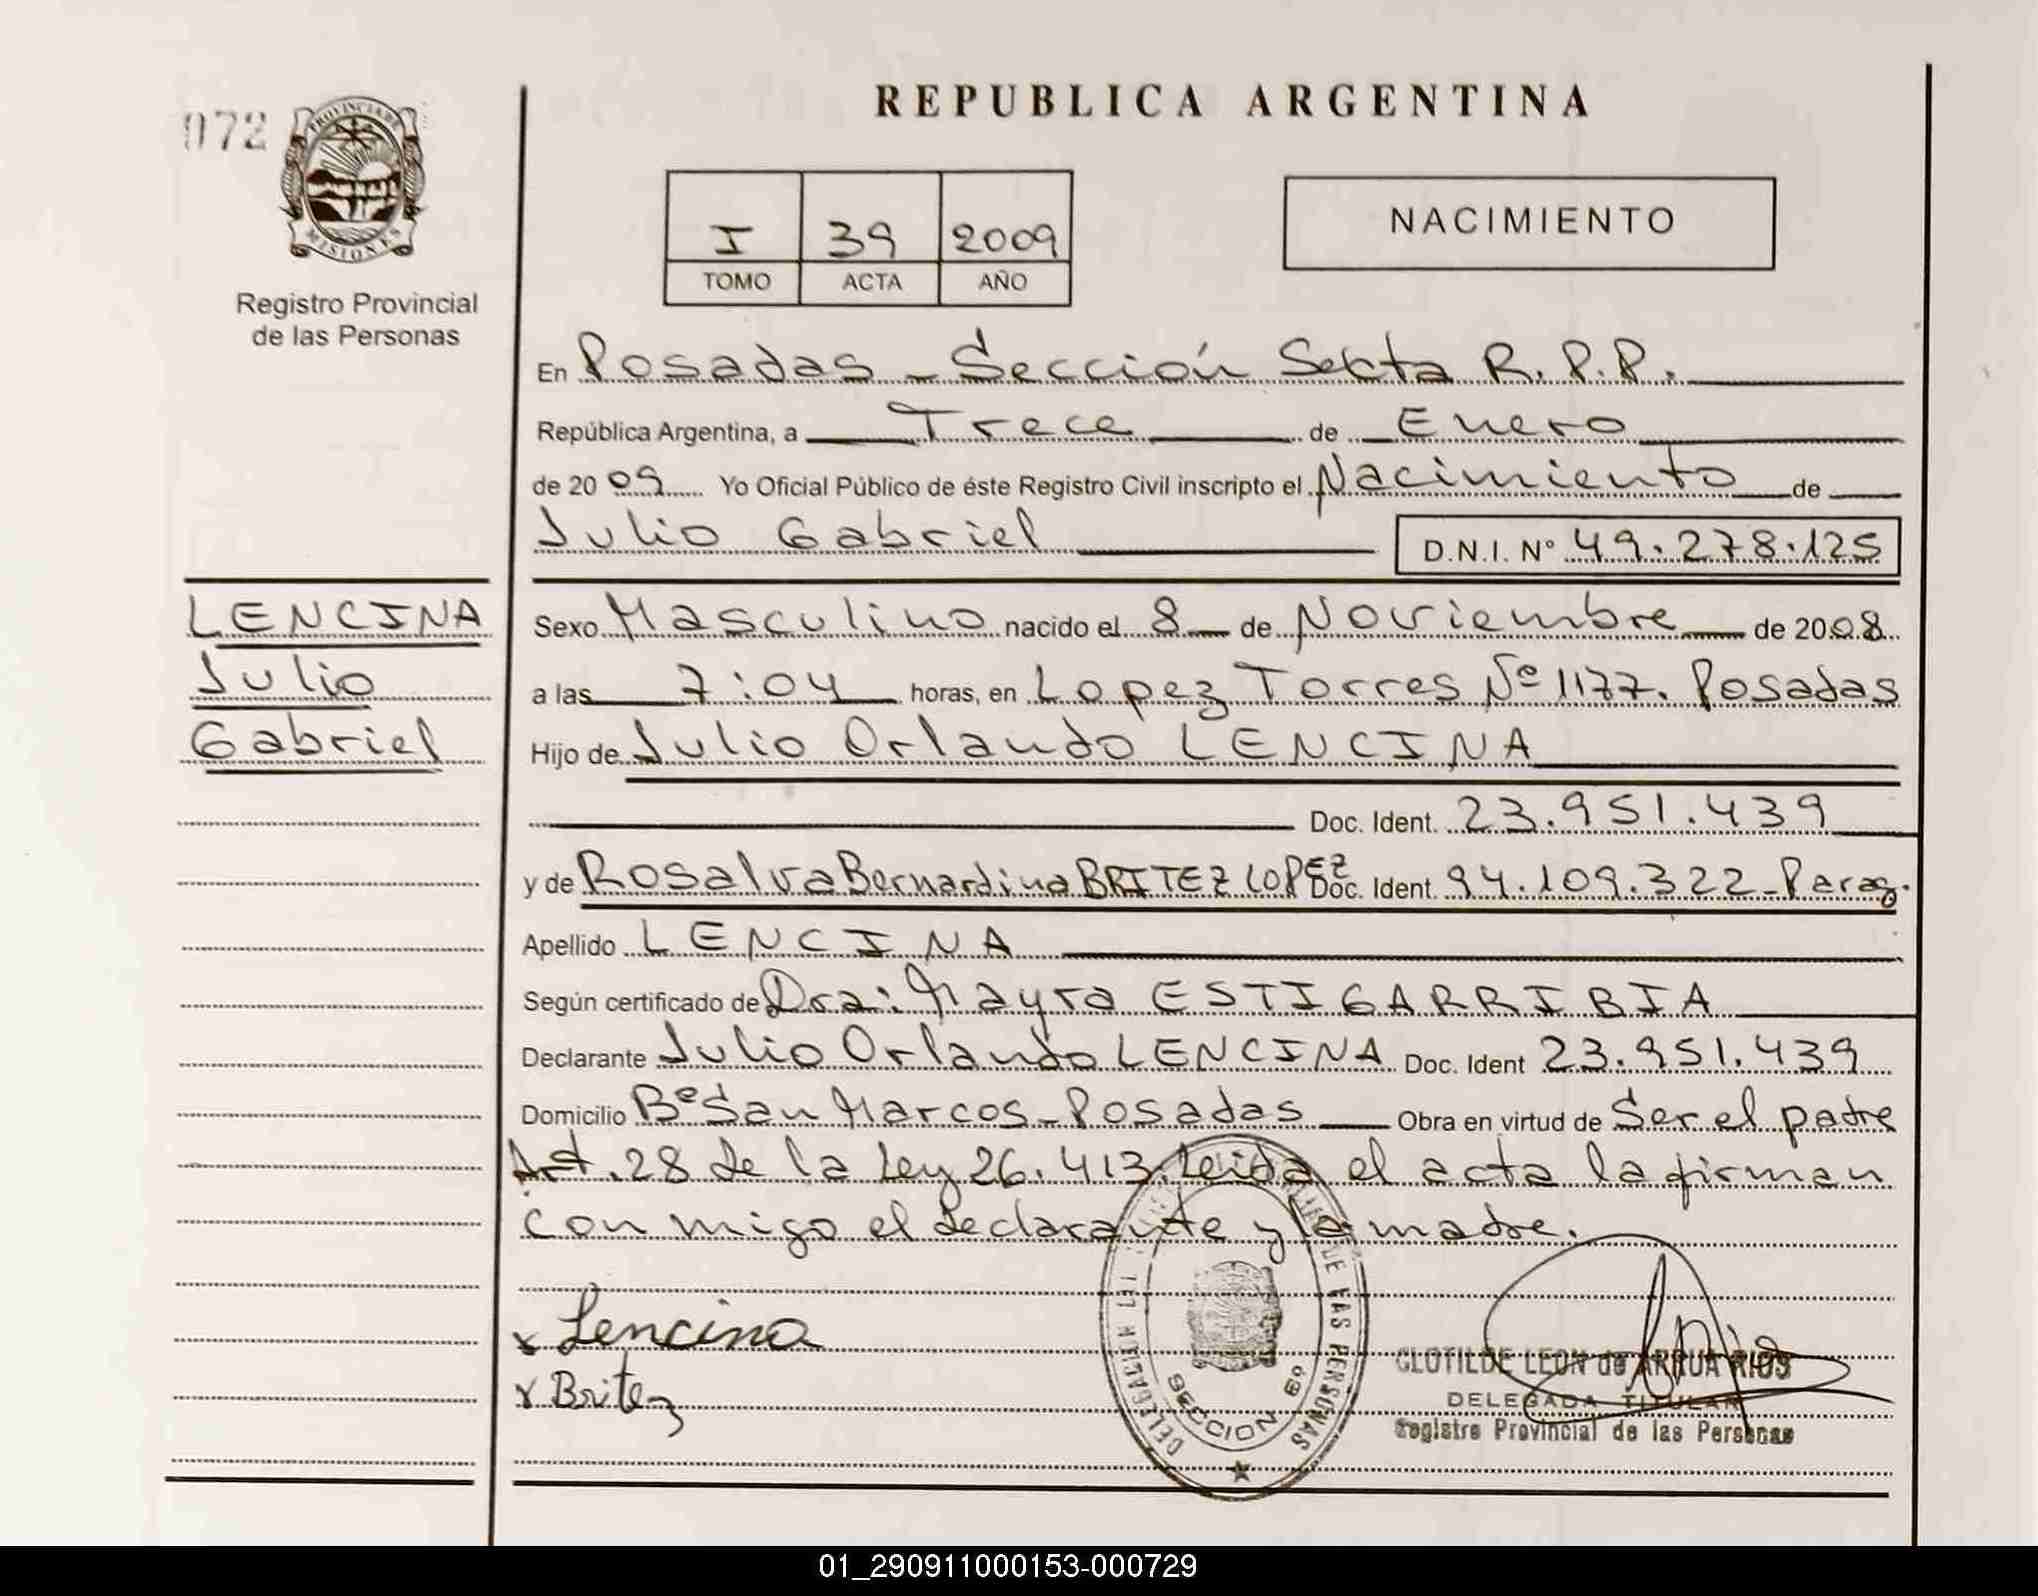 REPUBLICA ARGENTINA
072
PROVINCIA DE
MISIONES
Registro Provincial
de las Personas
I 39 2009
TOMO ACTA AÑO
NACIMIENTO
En Posadas - Sección Sexta R.P.P.
República Argentina, a Trece de Enero
de 2009 Yo Oficial Público de éste Registro Civil inscripto el Nacimiento de
Julio Gabriel D.N.I. Nº 49.278.125
LENCINA
Julio
Gabriel
Sexo Masculino nacido el 8 de Noviembre de 2008
a las 7:04 horas, en Lopez Torres Nº 1177. Posadas
Hijo de Julio Orlando LENCINA
Doc. Ident. 23.951.439
y de Rosalva Bernardina BRITEZ LOPEZ Doc. Ident. 94.109.322-Parag.
Apellido LENCINA
Según certificado de Dra: Mayra ESTIGARRIBIA
Declarante Julio Orlando LENCINA Doc. Ident 23.951.439
Domicilio Bº San Marcos - Posadas Obra en virtud de Ser el padre
Art. 28 de la Ley 26.413. Leida el acta la firman
con migo el declarante y la madre.
x Lencina
x Britez
DE LAS PERSONAS
SECCION 6º
CLOTILDE LEON de ARRUA RIOS
DELEGADA TITULAR
Registro Provincial de las Personas
01_290911000153-000729